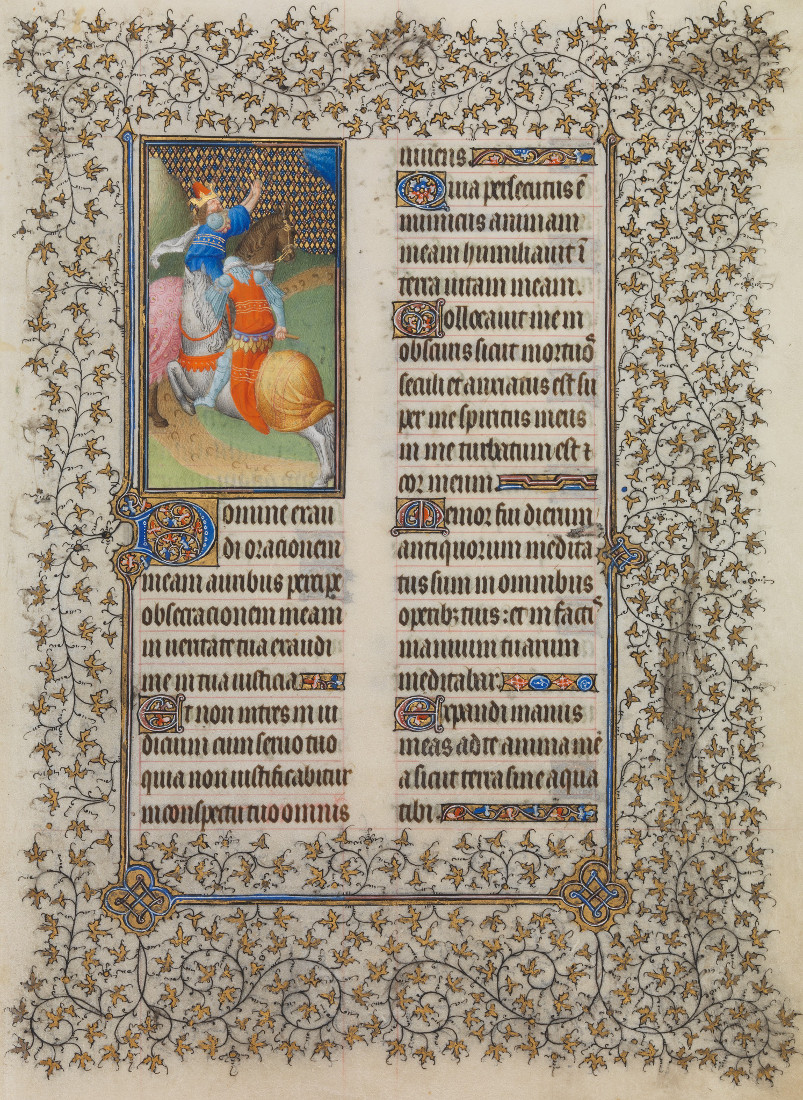 Domine exau
di oracionem
meam auribus percipe
obsecracionem meam
in ueritate tua exaudi
me in tua iusticia
Et non intres in iu
dicium cum seruo tuo
quia non iustificabitur
in conspectu tuo omnis
uiuens.
Quia persecutus ē
inimicus animam
meam humiliauit ī
terra uitam meam
Collocauit me in
obscuris sicut mortuoˢ
seculi et anxiatus est su
per me spiritus meus
in me turbatum est ⁊
cor meum
Memor fui dierum
antiquorum medita
tus sum in omnibus
operib; tuis: et in factiˢ
manuum tuarum
meditabar.
Expandi manus
meas ad te anima me
a sicut terra sine aqua
tibi.